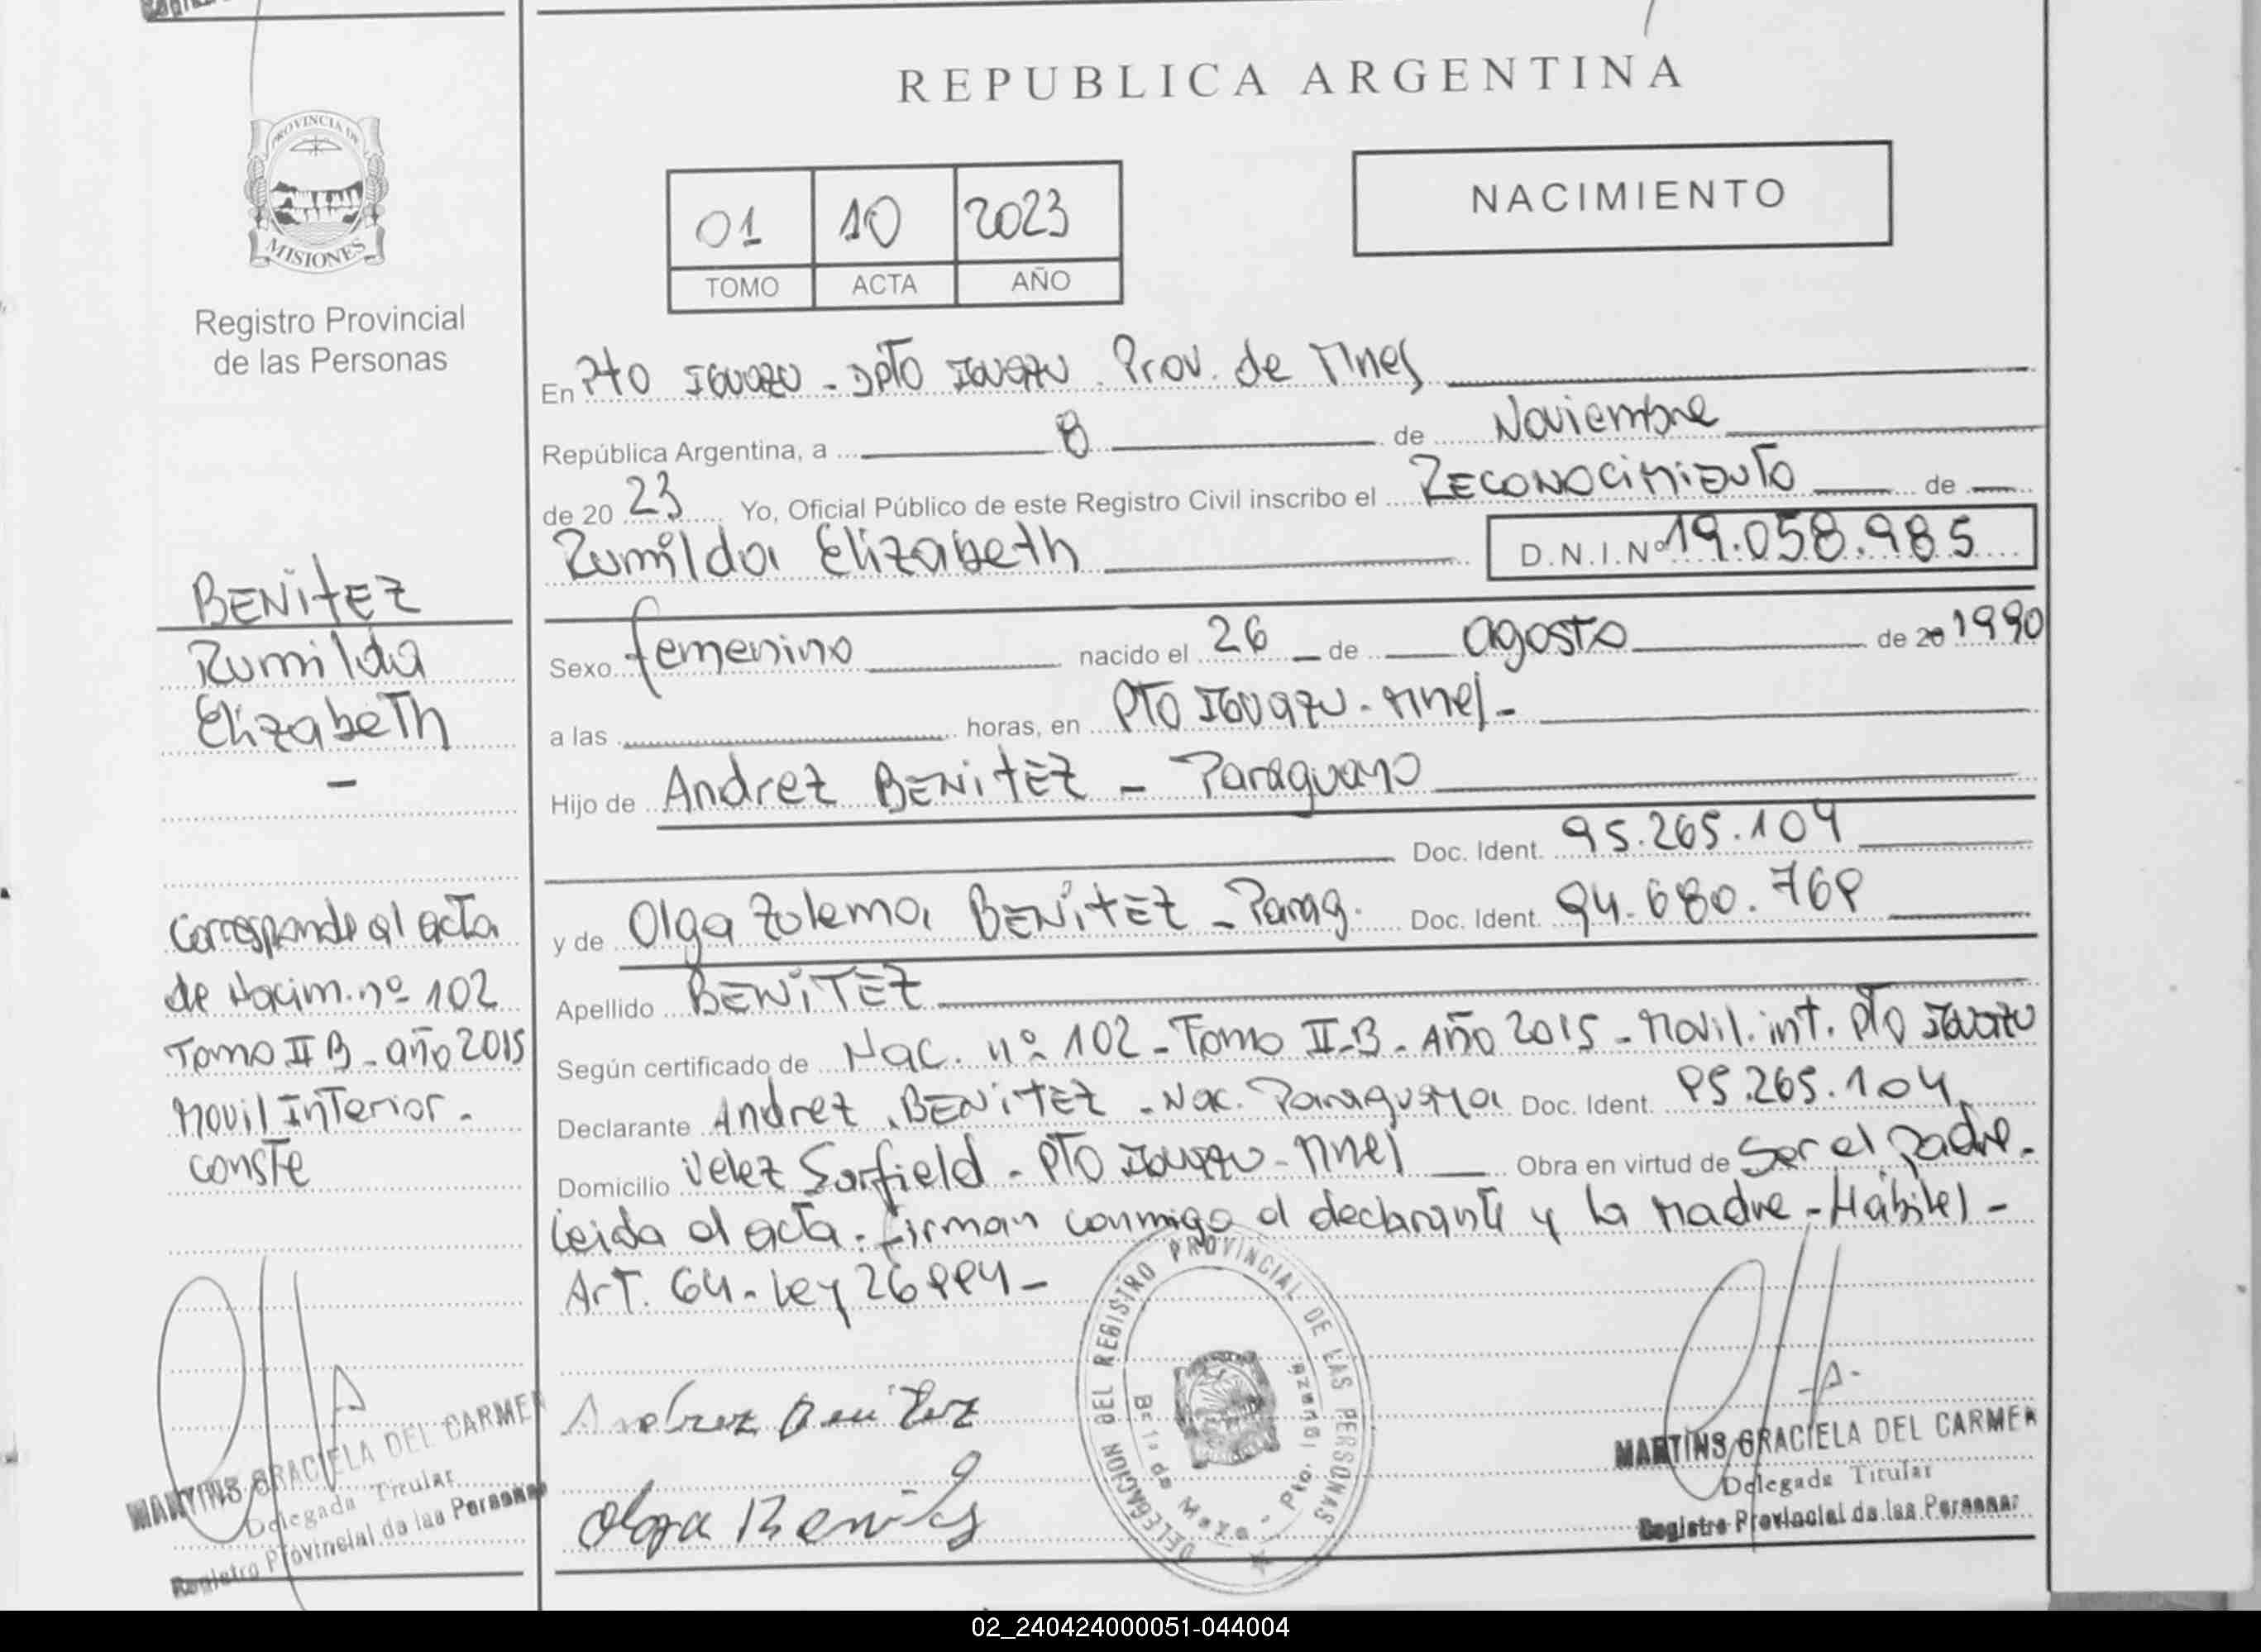 REPUBLICA ARGENTINA
PROVINCIA DE
MISIONES
Registro Provincial
de las Personas
01 10 2023
TOMO ACTA AÑO
NACIMIENTO
En Pto Iguazu - Dpto Iguazu. Prov. de Mnes
República Argentina, a 8 de Noviembre
de 20 23 Yo, Oficial Público de este Registro Civil inscribo el Reconocimiento de
Rumilda Elizabeth D.N.I.Nº 19.058.985
BENitEZ
Rumilda
Elizabeth
-
Sexo femenino nacido el 26 de agosto de 20 1990
a las horas, en Pto Iguazu - Mnes -
Hijo de Andrez BENitEZ - Paraguayo
Doc. Ident. 95.265.104
y de Olga Zulema BENitEZ - Parag. Doc. Ident. 94.680.769
Apellido BENITEZ
Según certificado de Nac. nº 102 - Tomo II-B - Año 2015 - Movil. int. Pto Iguazu
Declarante Andrez BENitEZ - Nac. Paraguaya Doc. Ident. 95.265.104
Domicilio Velez Sarfield - Pto Iguazu - Mnes Obra en virtud de Ser el padre.
Leida el acta. firman conmigo el declarante y la Madre - Hábiles -
Art. 64 - Ley 26994 -
Corresponde al acta
de Nacim. nº 102
Tomo II B - año 2015
Movil Interior.
conste
Andrez Benitez
Olga Benitez
DELEGACION DEL REGISTRO PROVINCIAL DE LAS PERSONAS
Bº 1º de Mayo - Pto. Iguazu
MARTINS GRACIELA DEL CARMEN
Delegada Titular
Registro Provincial de las Personas
MARTINS GRACIELA DEL CARMEN
Delegada Titular
Registro Provincial de las Personas
02_240424000051-044004